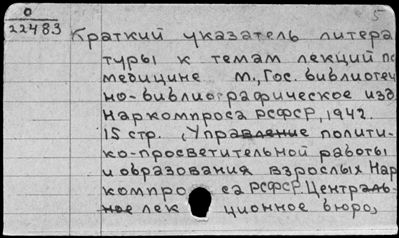 0
22483
5
Краткий указатель литера
туры к темам лекций по
медицине М., Гос. библиотеч
но-библиографическое изд.
Наркомпроса РСФСР, 1942.
15 стр. (Управление полити-
ко-просветительной работы
и образования взрослых Нар
компро са РСФСР. Централь-
ное лек ционное бюро)